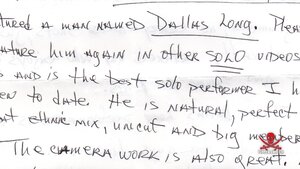 tured a man named Dallas Long. Pleas
ature him again in other SOLO videos
s and is the best solo performer I h
en to date. He is natural, perfect
nt ethnic mix, uncut and big member
The camera work is also great...